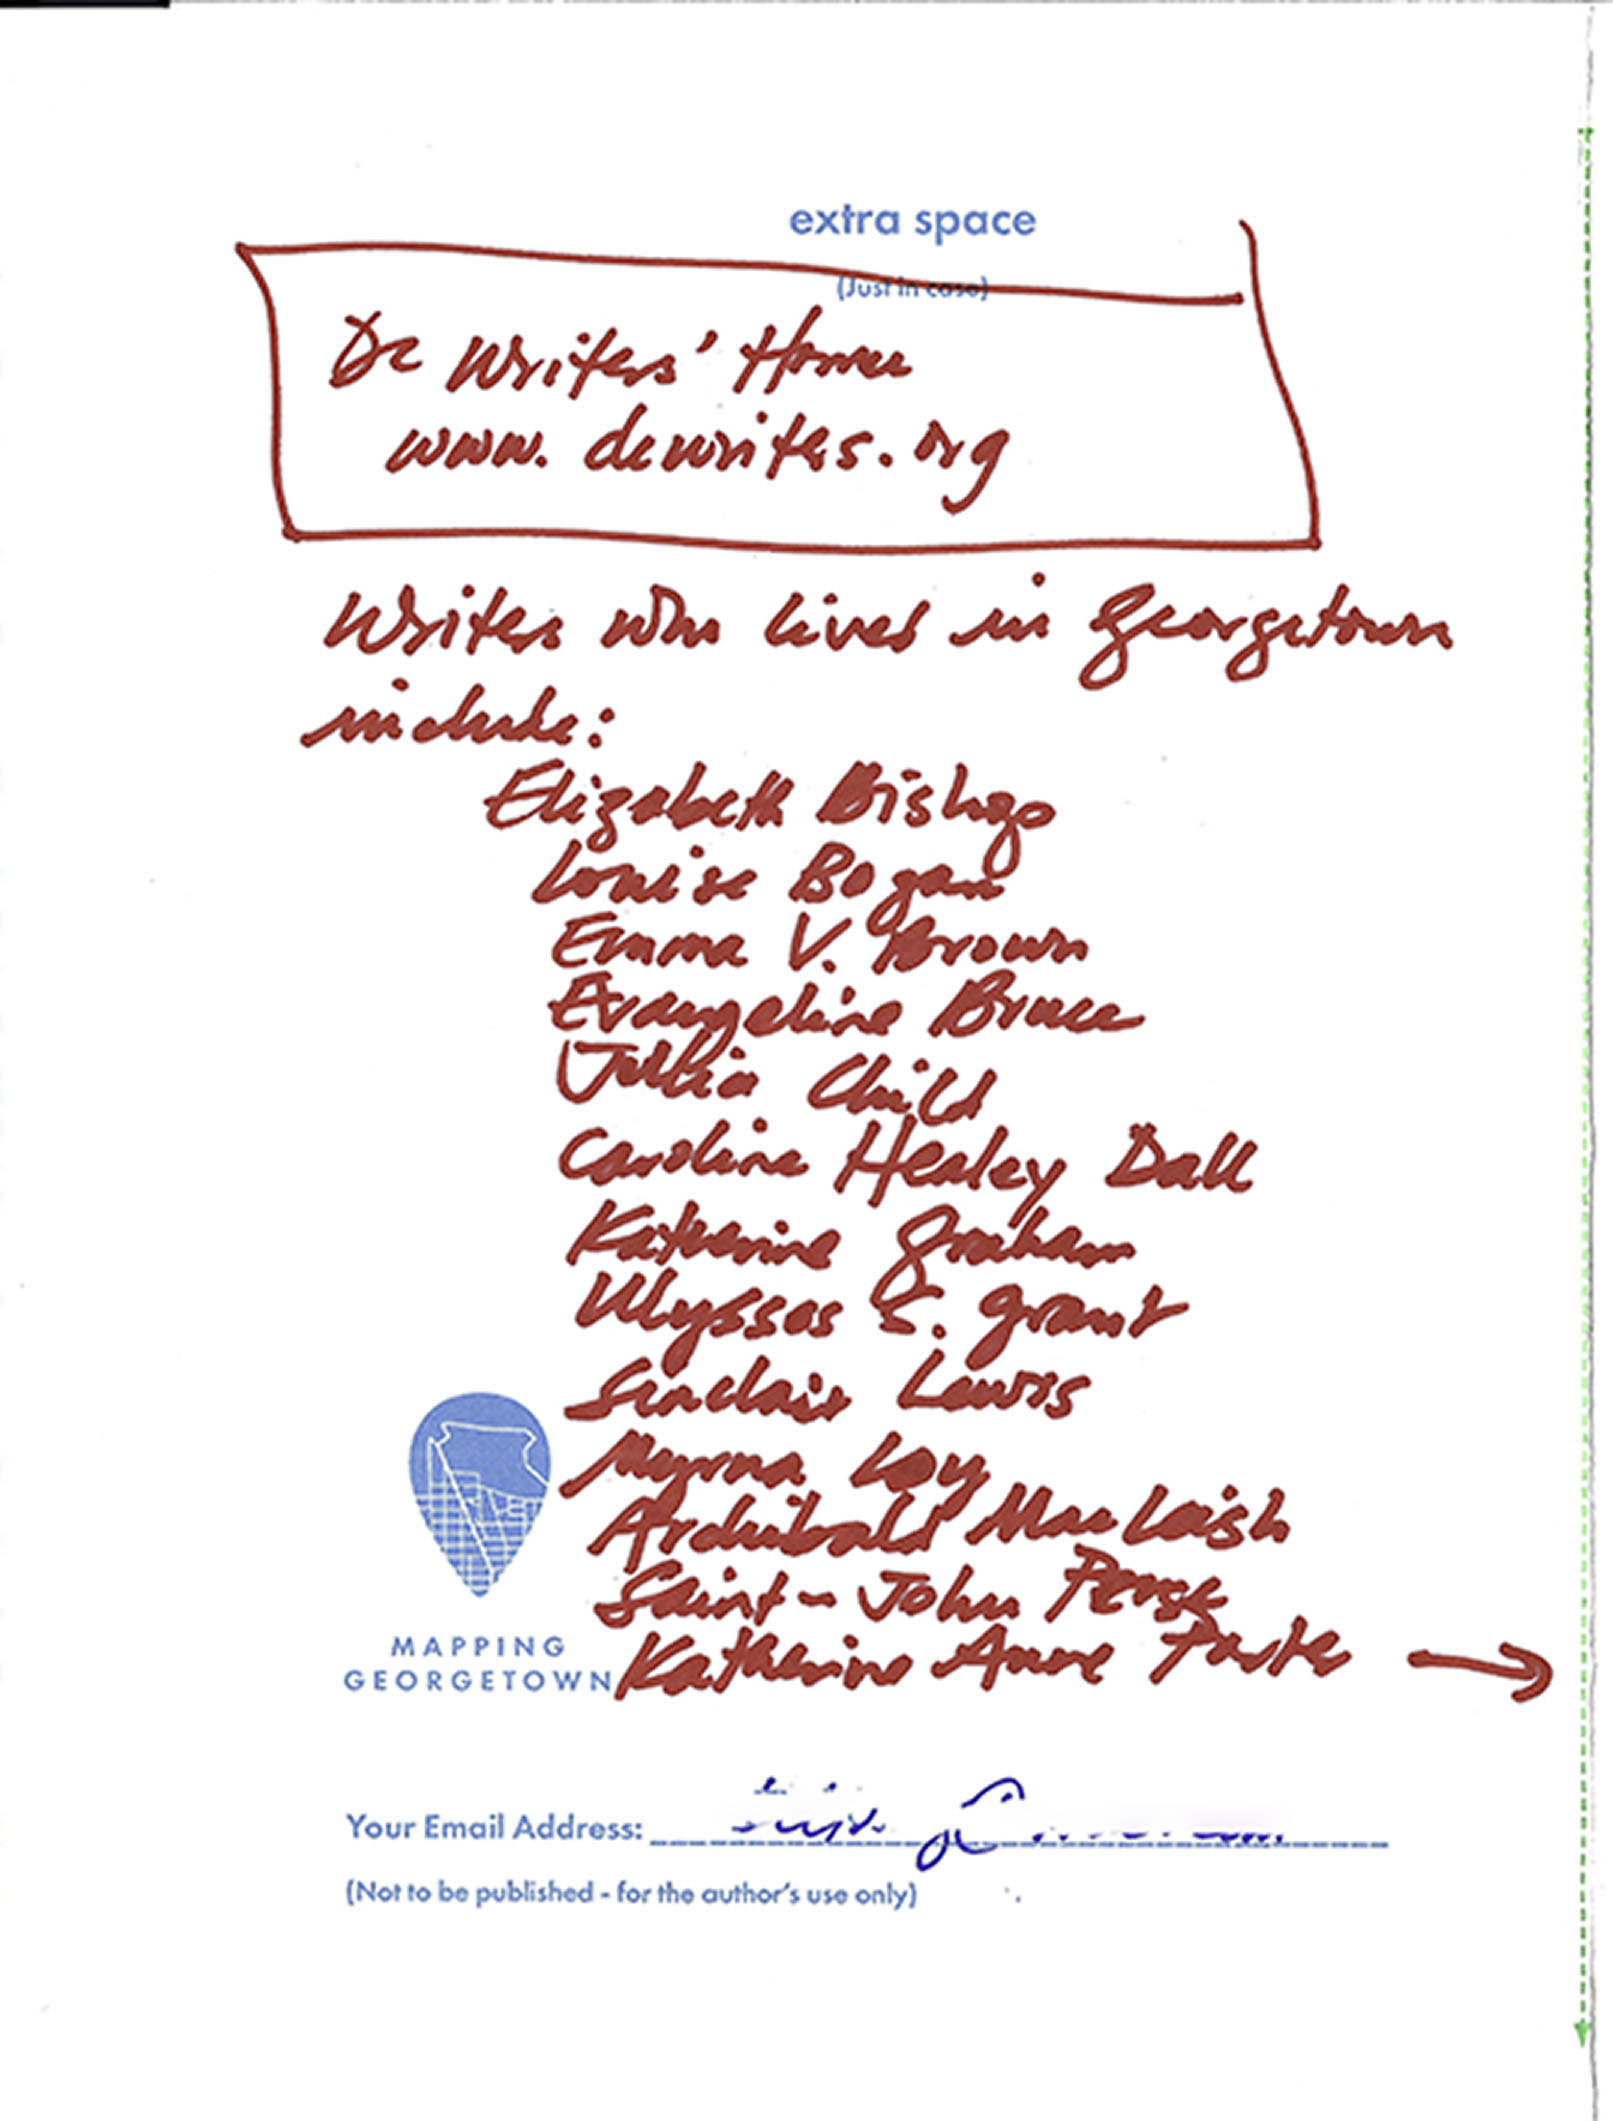 extra space
(Just in case)
DC Writers' Homes
www.dcwriters.org
Writers who lived in Georgetown
include:
Elizabeth Bishop
Louise Bogan
Emma V. Brown
Evangeline Bruce
Julia Child
Caroline Healey Dall
Katherine Graham
Ulysses S. Grant
Sinclair Lewis
Myrna Loy
Archibald MacLeish
Saint-John Perse
Katherine Anne Porter →
MAPPING
GEORGETOWN
Your Email Address:
(Not to be published - for the author's use only)